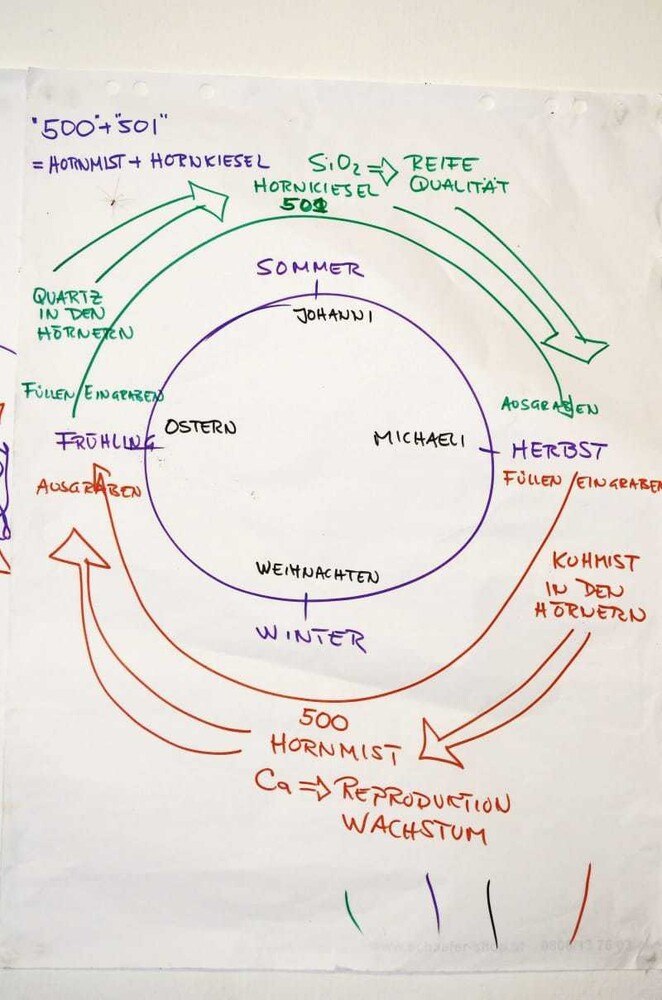 "500"+"501"
= HORNMIST + HORNKIESEL
SiO2 ⇒ REIFE
QUALITÄT
HORNKIESEL
501
SOMMER
JOHANNI
QUARTZ
IN DEN
HÖRNERN
FÜLLEN/EINGRABEN
AUSGRABEN
FRÜHLING
OSTERN
MICHAELI
HERBST
AUSGRABEN
FÜLLEN/EINGRABEN
KUHMIST
IN DEN
HÖRNERN
WEIHNACHTEN
WINTER
500
HORNMIST
Ca ⇒ REPRODUKTION
WACHSTUM